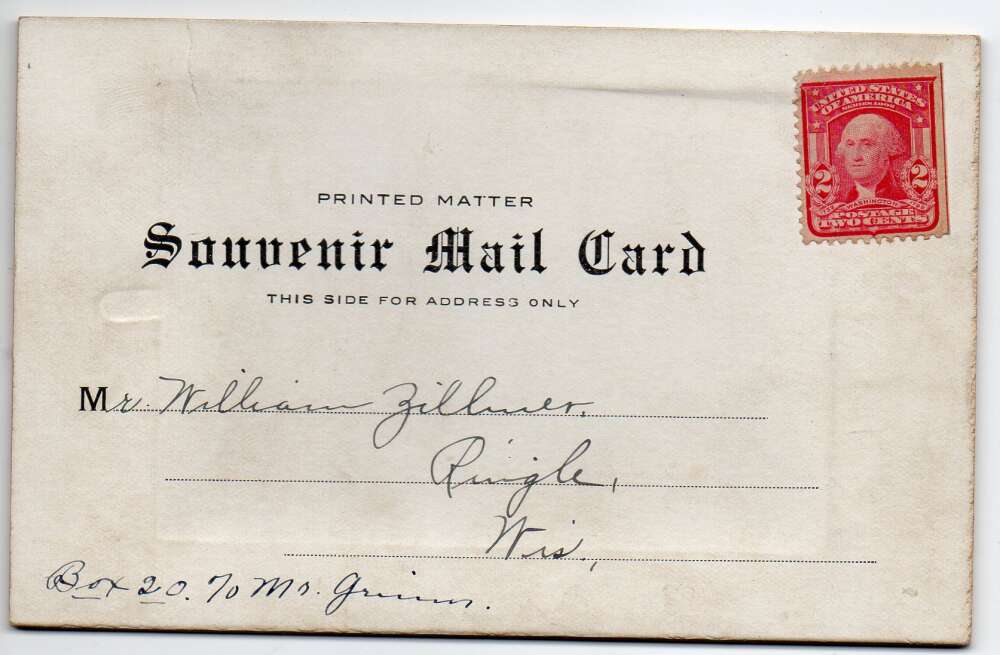 UNITED STATES
OF AMERICA
SERIES 1902
2 WASHINGTON 2
POSTAGE
TWO CENTS
PRINTED MATTER
Souvenir Mail Card
THIS SIDE FOR ADDRESS ONLY
Mr. William Zillmer.
Ringle,
Wis.,
Box 20. % Mr. Grimm.